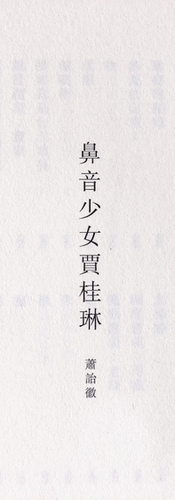 鼻音少女賈桂琳
蕭詒徽